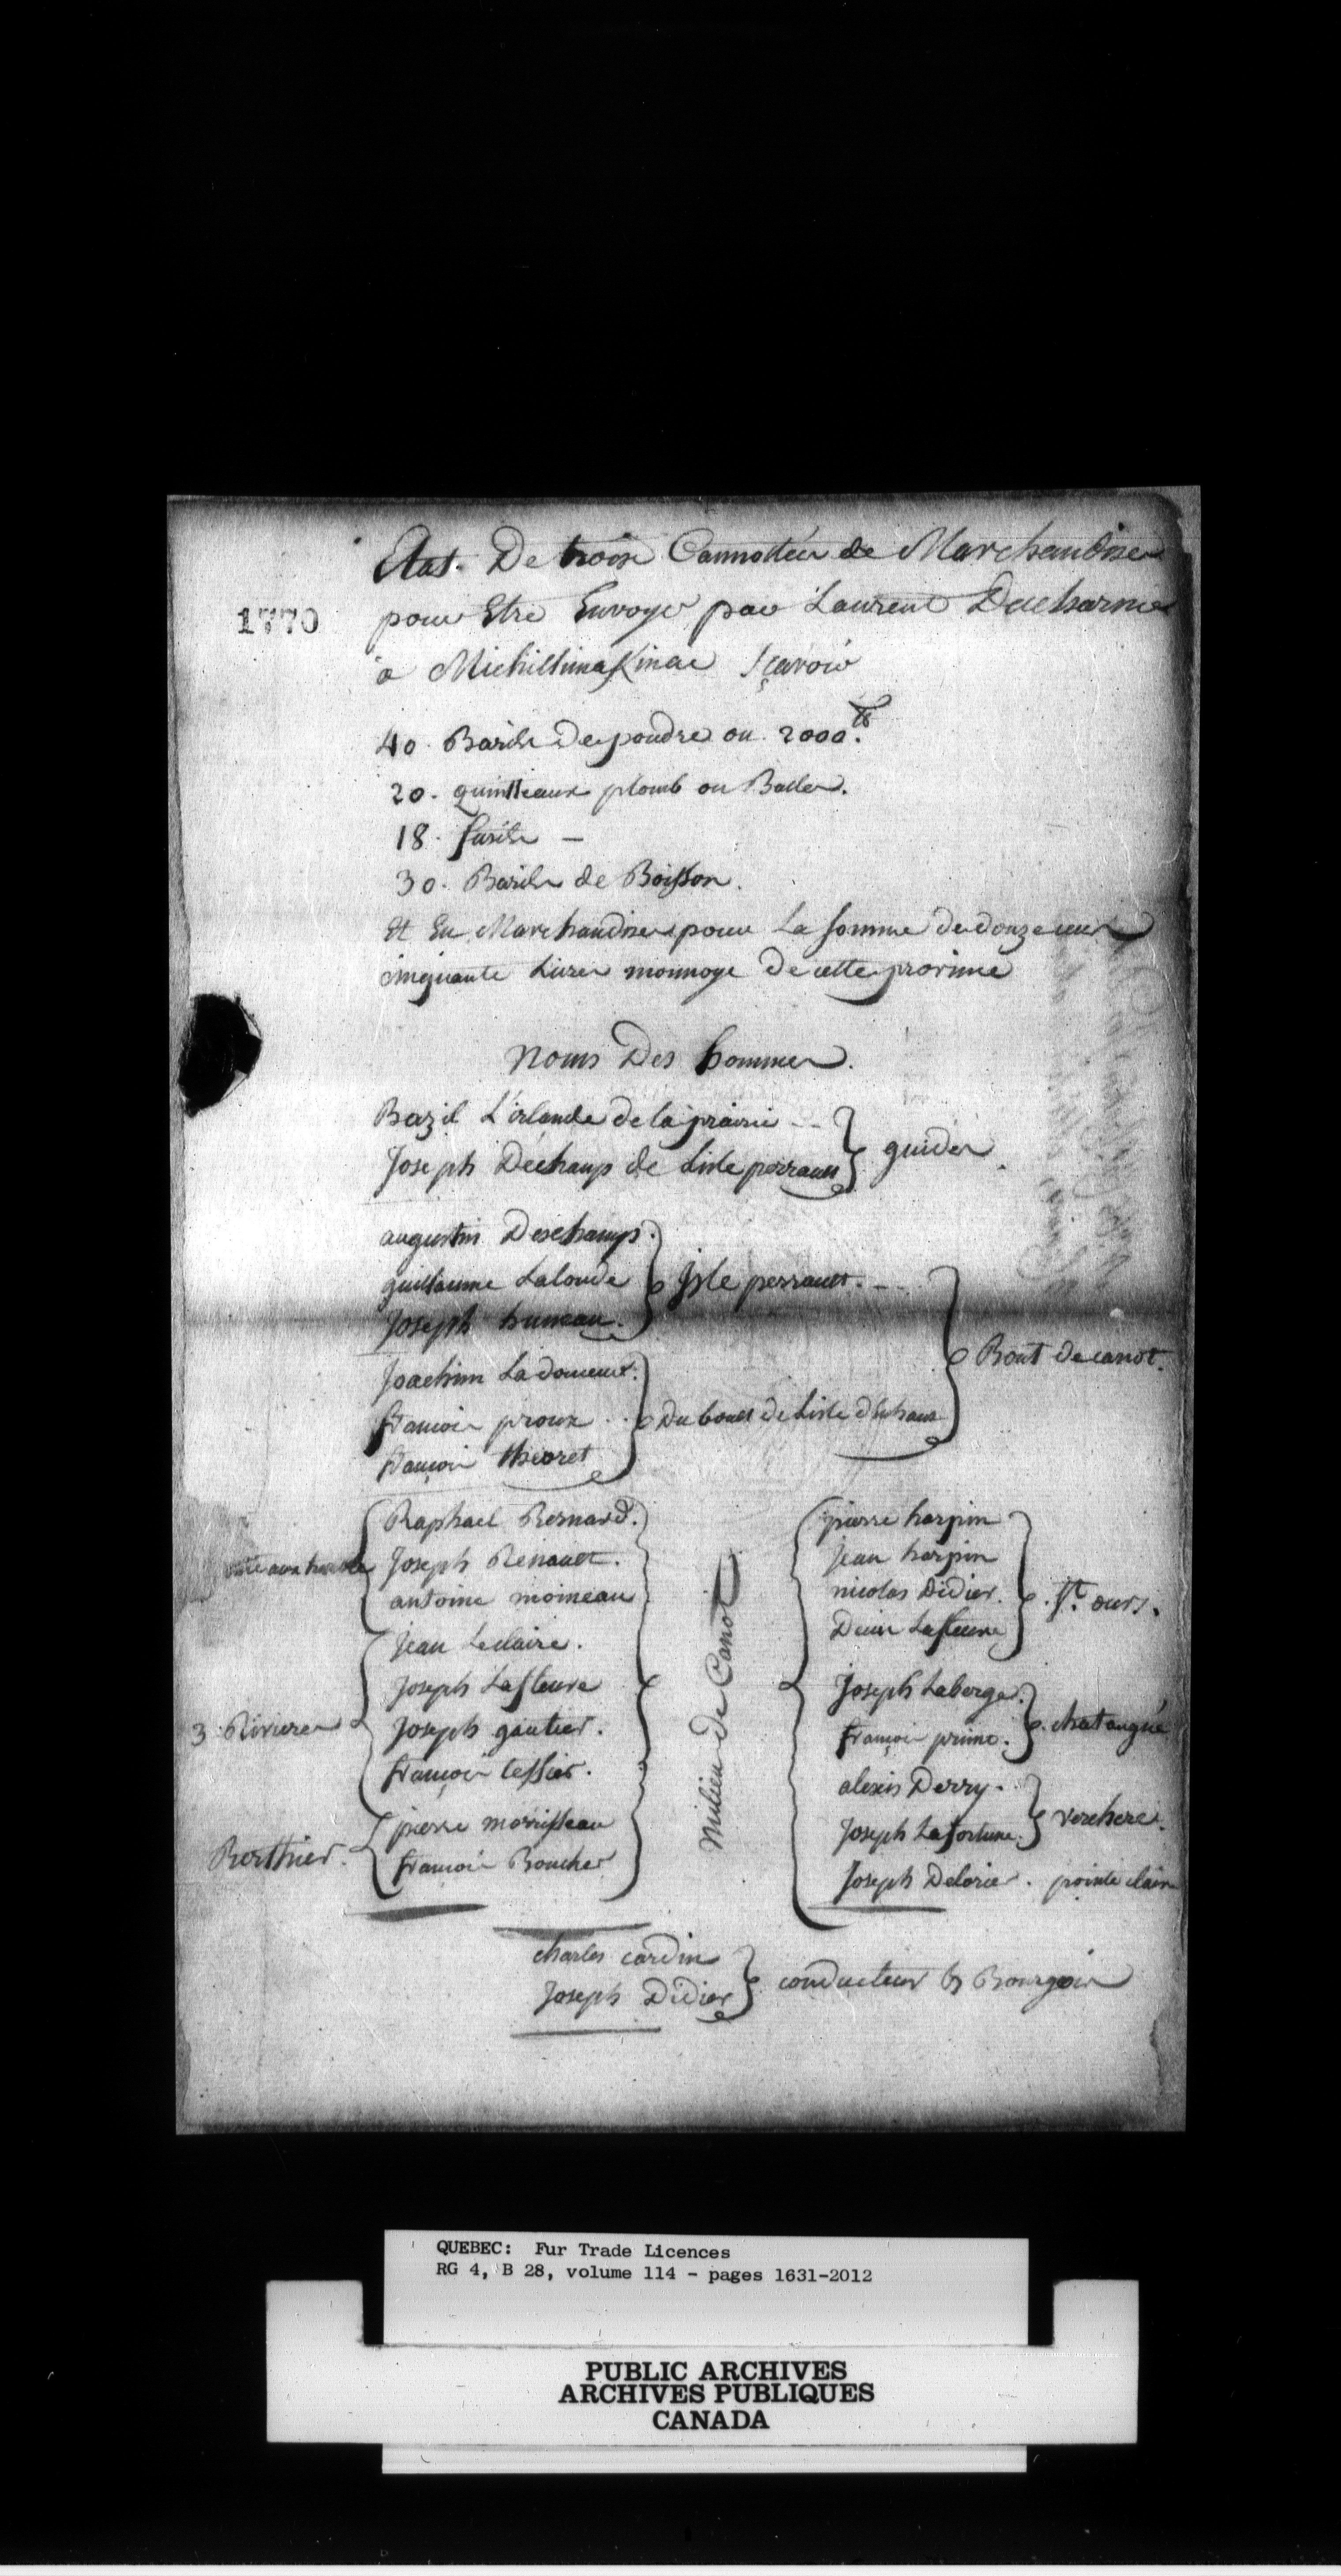 Etat De trois Cannottées de Marchandises
1770
pour Etre Envoyé par Laurent Ducharme
à Michillimakinac Sçavoir
40. Barils De poudre ou 2000.lb
20. quintteaux plomb ou Balles.
18. fusils —
30. Barils de Boisson.
Et En Marchandises pour La somme de douze cent
cinquante Livres monnoye De cette province
Noms Des hommes.
Bazil L'irlande de la prairie --
Joseph Déchamp de Lisle perrault
guides.
augustin Deschamps.
guillaume Lalonde
Joseph huneau.
Isle perrault. --
Joachim Ladouceur.
francois proux ..
françois theoret
Du bout de Lisle d'Enhaut
Bout de canot.
Raphael Bernard.
Joseph Renault.
antoine moineau
Jean Leclaire.
Joseph Lafleure
Joseph gautier.
françois tessier.
3 Rivieres
pierre morrisseau
françois Boucher
Berthier.
Milieu de Canot
pierre harpin
Jean harpin
nicolas Didier.
Denis Lafleure
St. ours.
Joseph Laberge.
françois primo.
chataugué
alexis Derry.
Joseph Lafortune.
verchere.
Joseph Delorier. pointe claire
charles cardin
Joseph Didier
conducteur & Bourgois
QUEBEC: Fur Trade Licences
RG 4, B 28, volume 114 - pages 1631-2012
PUBLIC ARCHIVES
ARCHIVES PUBLIQUES
CANADA